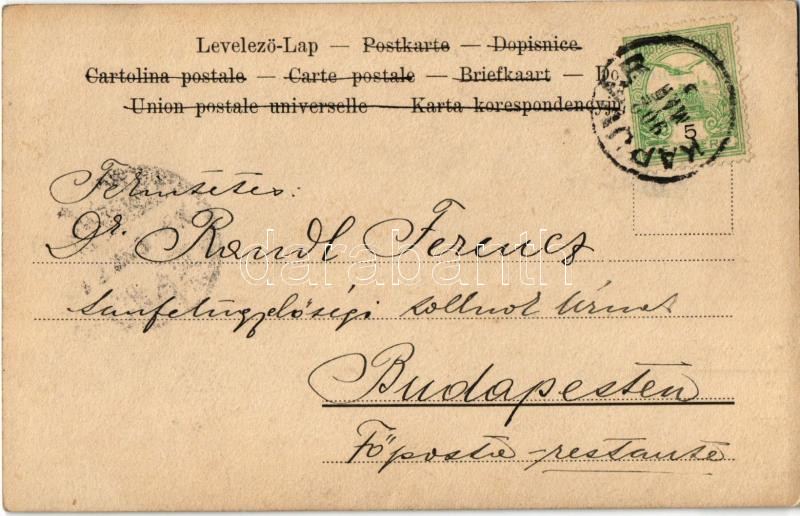 Levelező-Lap — Postkarte — Dopisnice.
Cartolina postale — Carte postale — Briefkaart — Do
Union postale universelle — Karta korespondencyjn
KAPUVÁR
902 MÁR
5
Dr. Randl Ferencz
tanfelügyelőségi tollnok úrnak
Budapesten
Főposta restante
darabanth